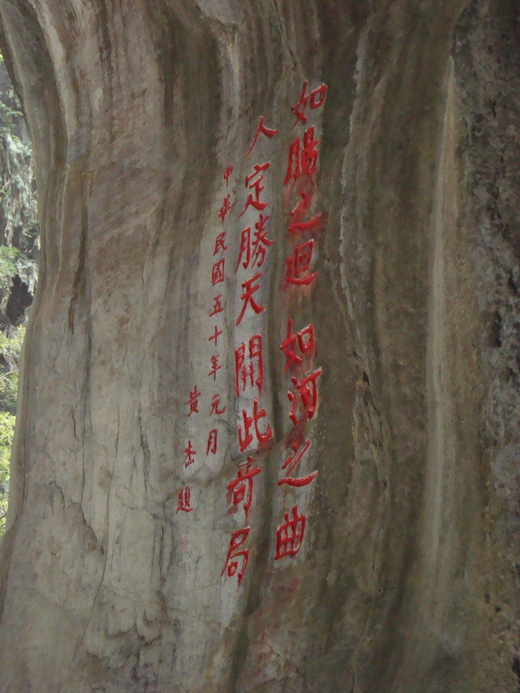 如腸之迴如河之曲
人定勝天開此奇局
中華民國五十年元月
黄杰題